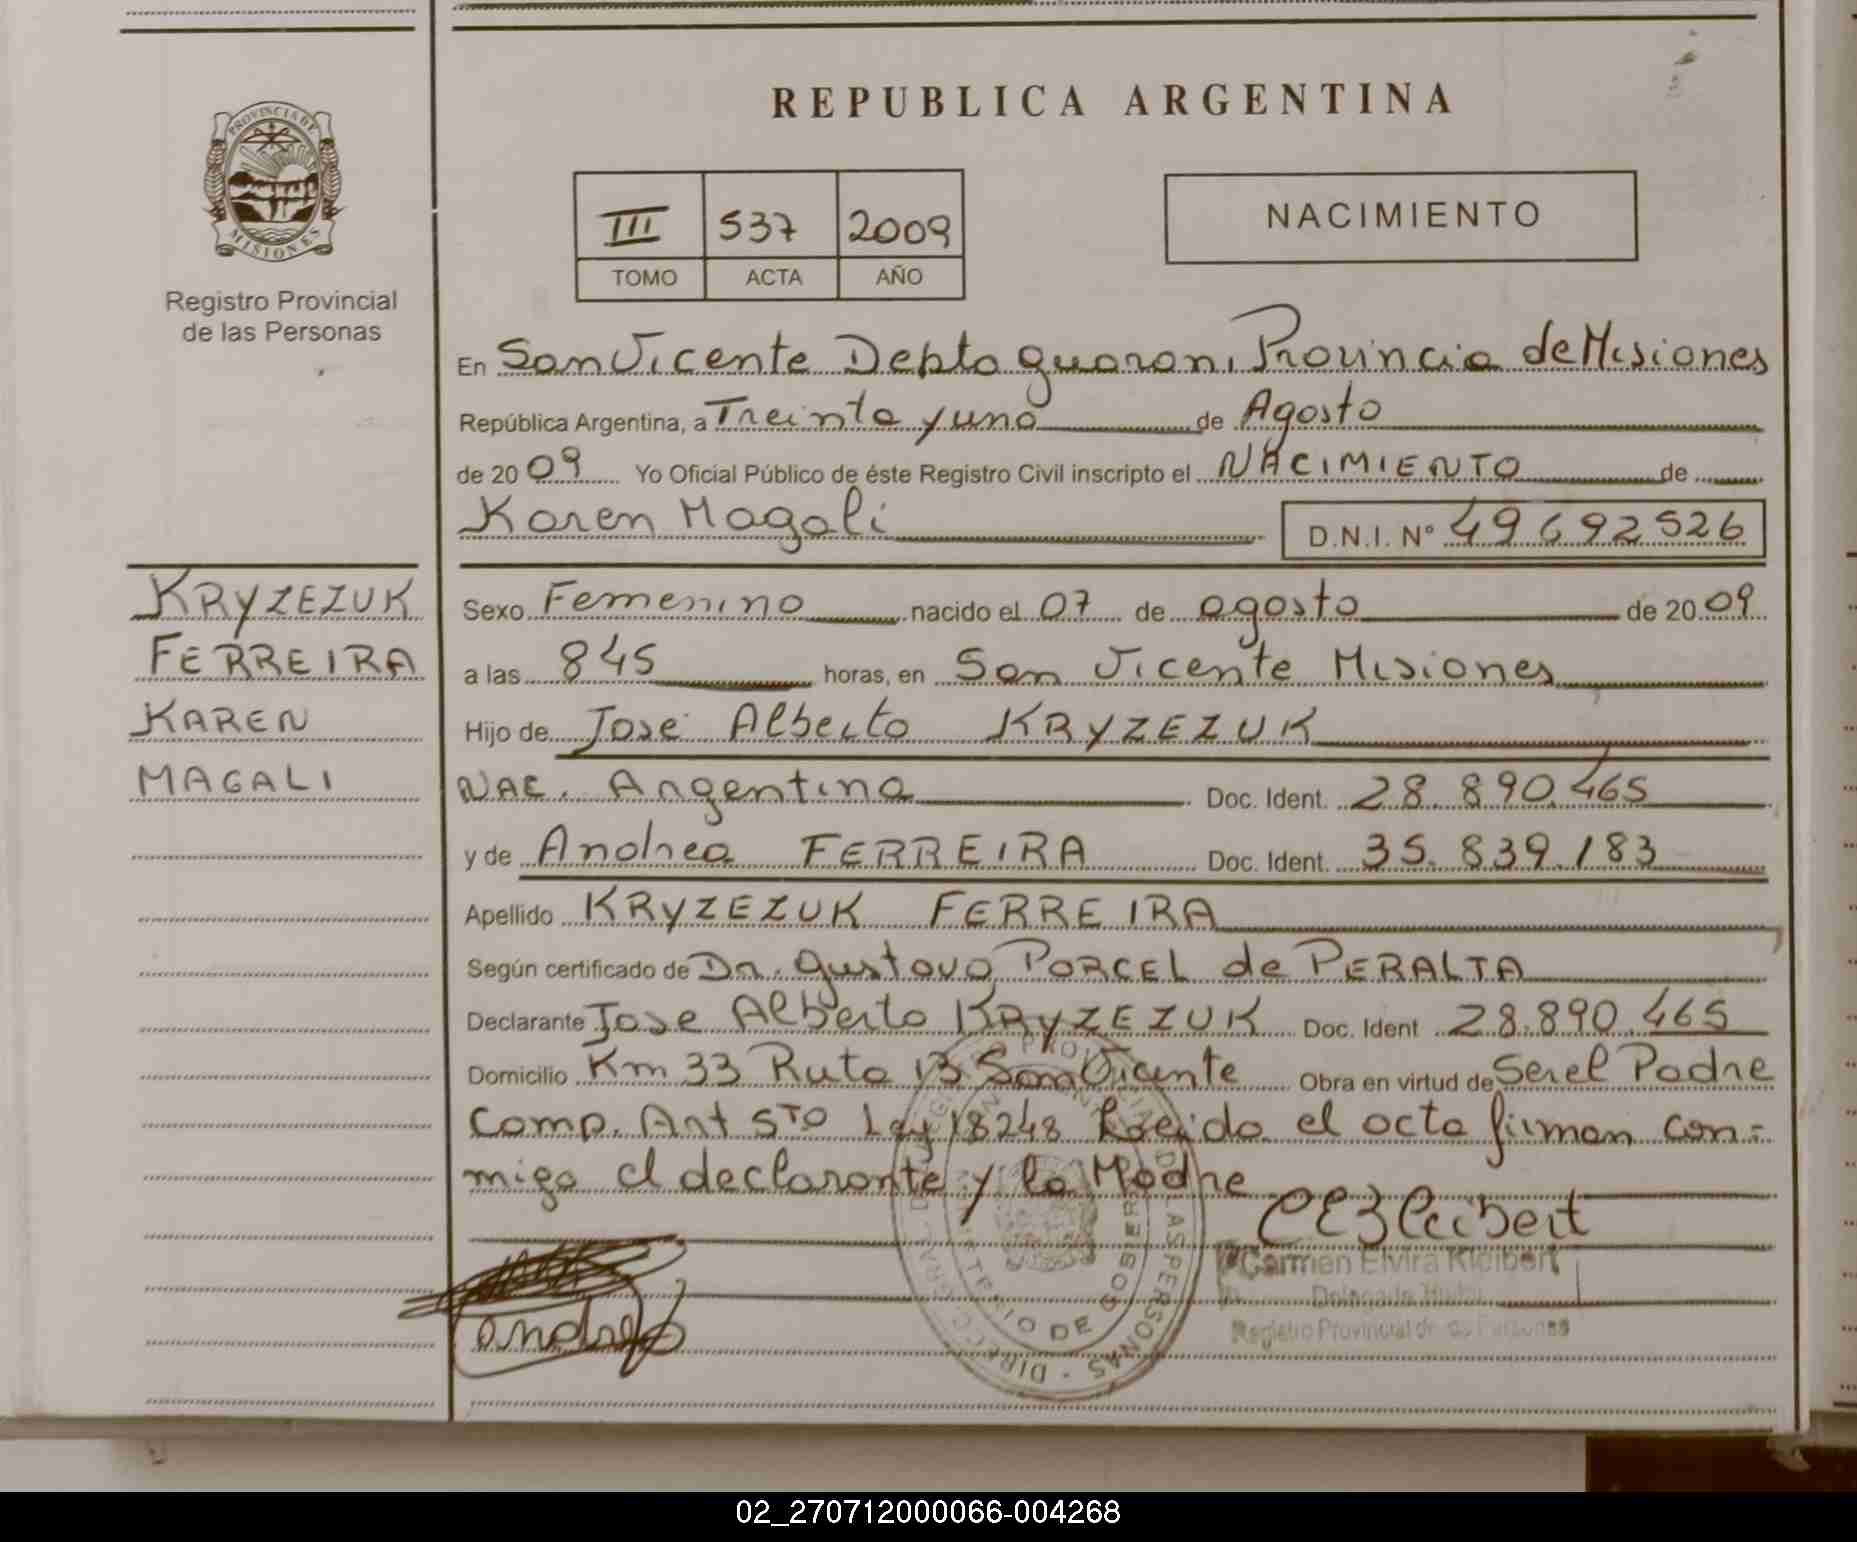 REPUBLICA ARGENTINA
PROVINCIA DE
MISIONES
Registro Provincial
de las Personas
III 537 2009
TOMO ACTA AÑO
NACIMIENTO
En San Vicente Depto guarani Provincia de Misiones
República Argentina, a Treinta y uno de Agosto
de 2009 Yo Oficial Público de éste Registro Civil inscripto el NACIMIENTO de
Karen Magali D.N.I. Nº 49692526
KRYZEZUK
FERREIRA
KAREN
MAGALI
Sexo Femenino nacido el 07 de agosto de 2009
a las 845 horas, en San Vicente Misiones
Hijo de Jose Alberto KRYZEZUK
NAC. Argentina Doc. Ident. 28.890.465
y de Andrea FERREIRA Doc. Ident. 35.839.183
Apellido KRYZEZUK FERREIRA
Según certificado de Dr. Gustavo PORCEL de PERALTA
Declarante Jose Alberto KRYZEZUK Doc. Ident 28.890.465
Domicilio Km 33 Ruta 13 San Vicente Obra en virtud de Ser el Padre
Comp. Art 5TO Ley 18248 Leido el acta firman con-
migo el declarante y la Madre
Carmen Elvira Kleibert
Registro Provincial de las Personas
DE LAS PERSONAS
MINISTERIO DE GOBIERNO
02_270712000066-004268